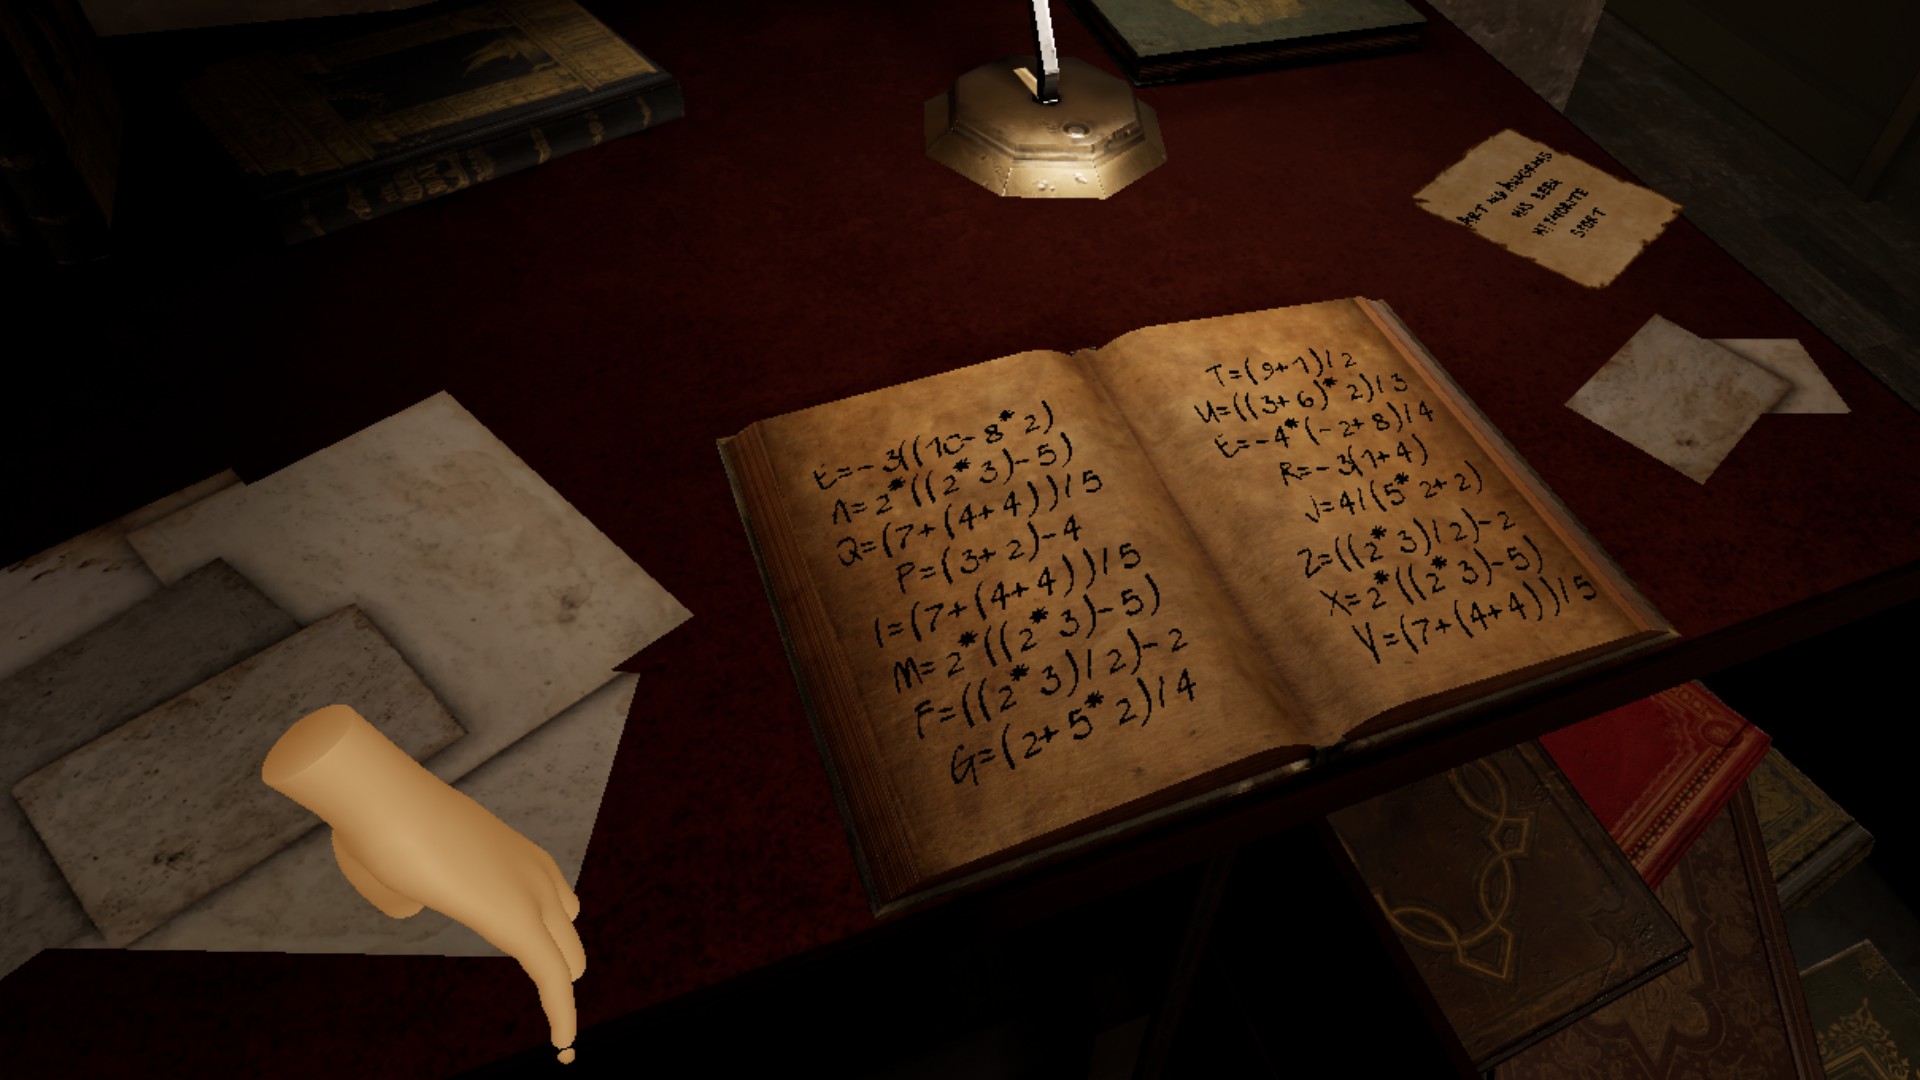 E=-3((10-8*2)
A=2*((2*3)-5)
Q=(7+(4+4))/5
P=(3+2)-4
I=(7+(4+4))/5
M=2*((2*3)-5)
F=((2*3)/2)-2
G=(2+5*2)/4
T=(9+1)/2
U=((3+6)*2)/3
E=-4*(-2+8)/4
R=-3(1+4)
J=4/(5*2+2)
Z=((2*3)/2)-2
X=2*((2*3)-5)
V=(7+(4+4))/5
ART
HAS BEEN
SPORT